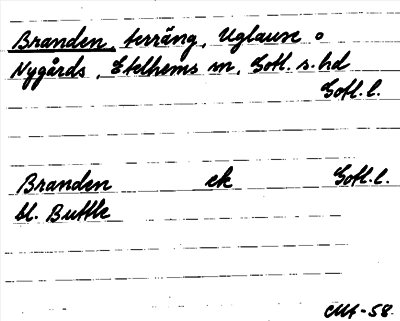 Branden, terräng, Uglause o
Nygårds, Etelhems sn, Gotl. s. hd
Gotl. l.
Branden ek Gotl. l.
bl. Buttle
CMf-58